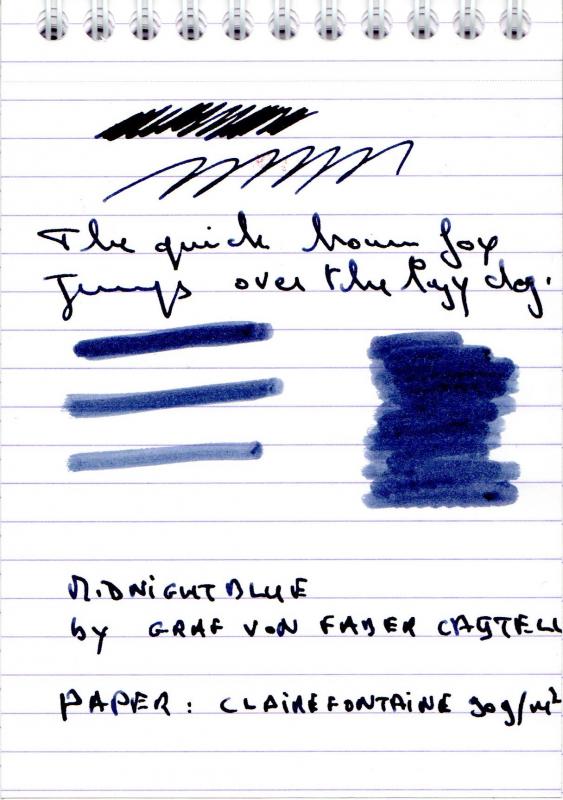 The quick brown fox
Jumps over the lazy dog.
MIDNIGHT BLUE
by GRAF VON FABER CASTELL
PAPER: CLAIREFONTAINE 90g/m²